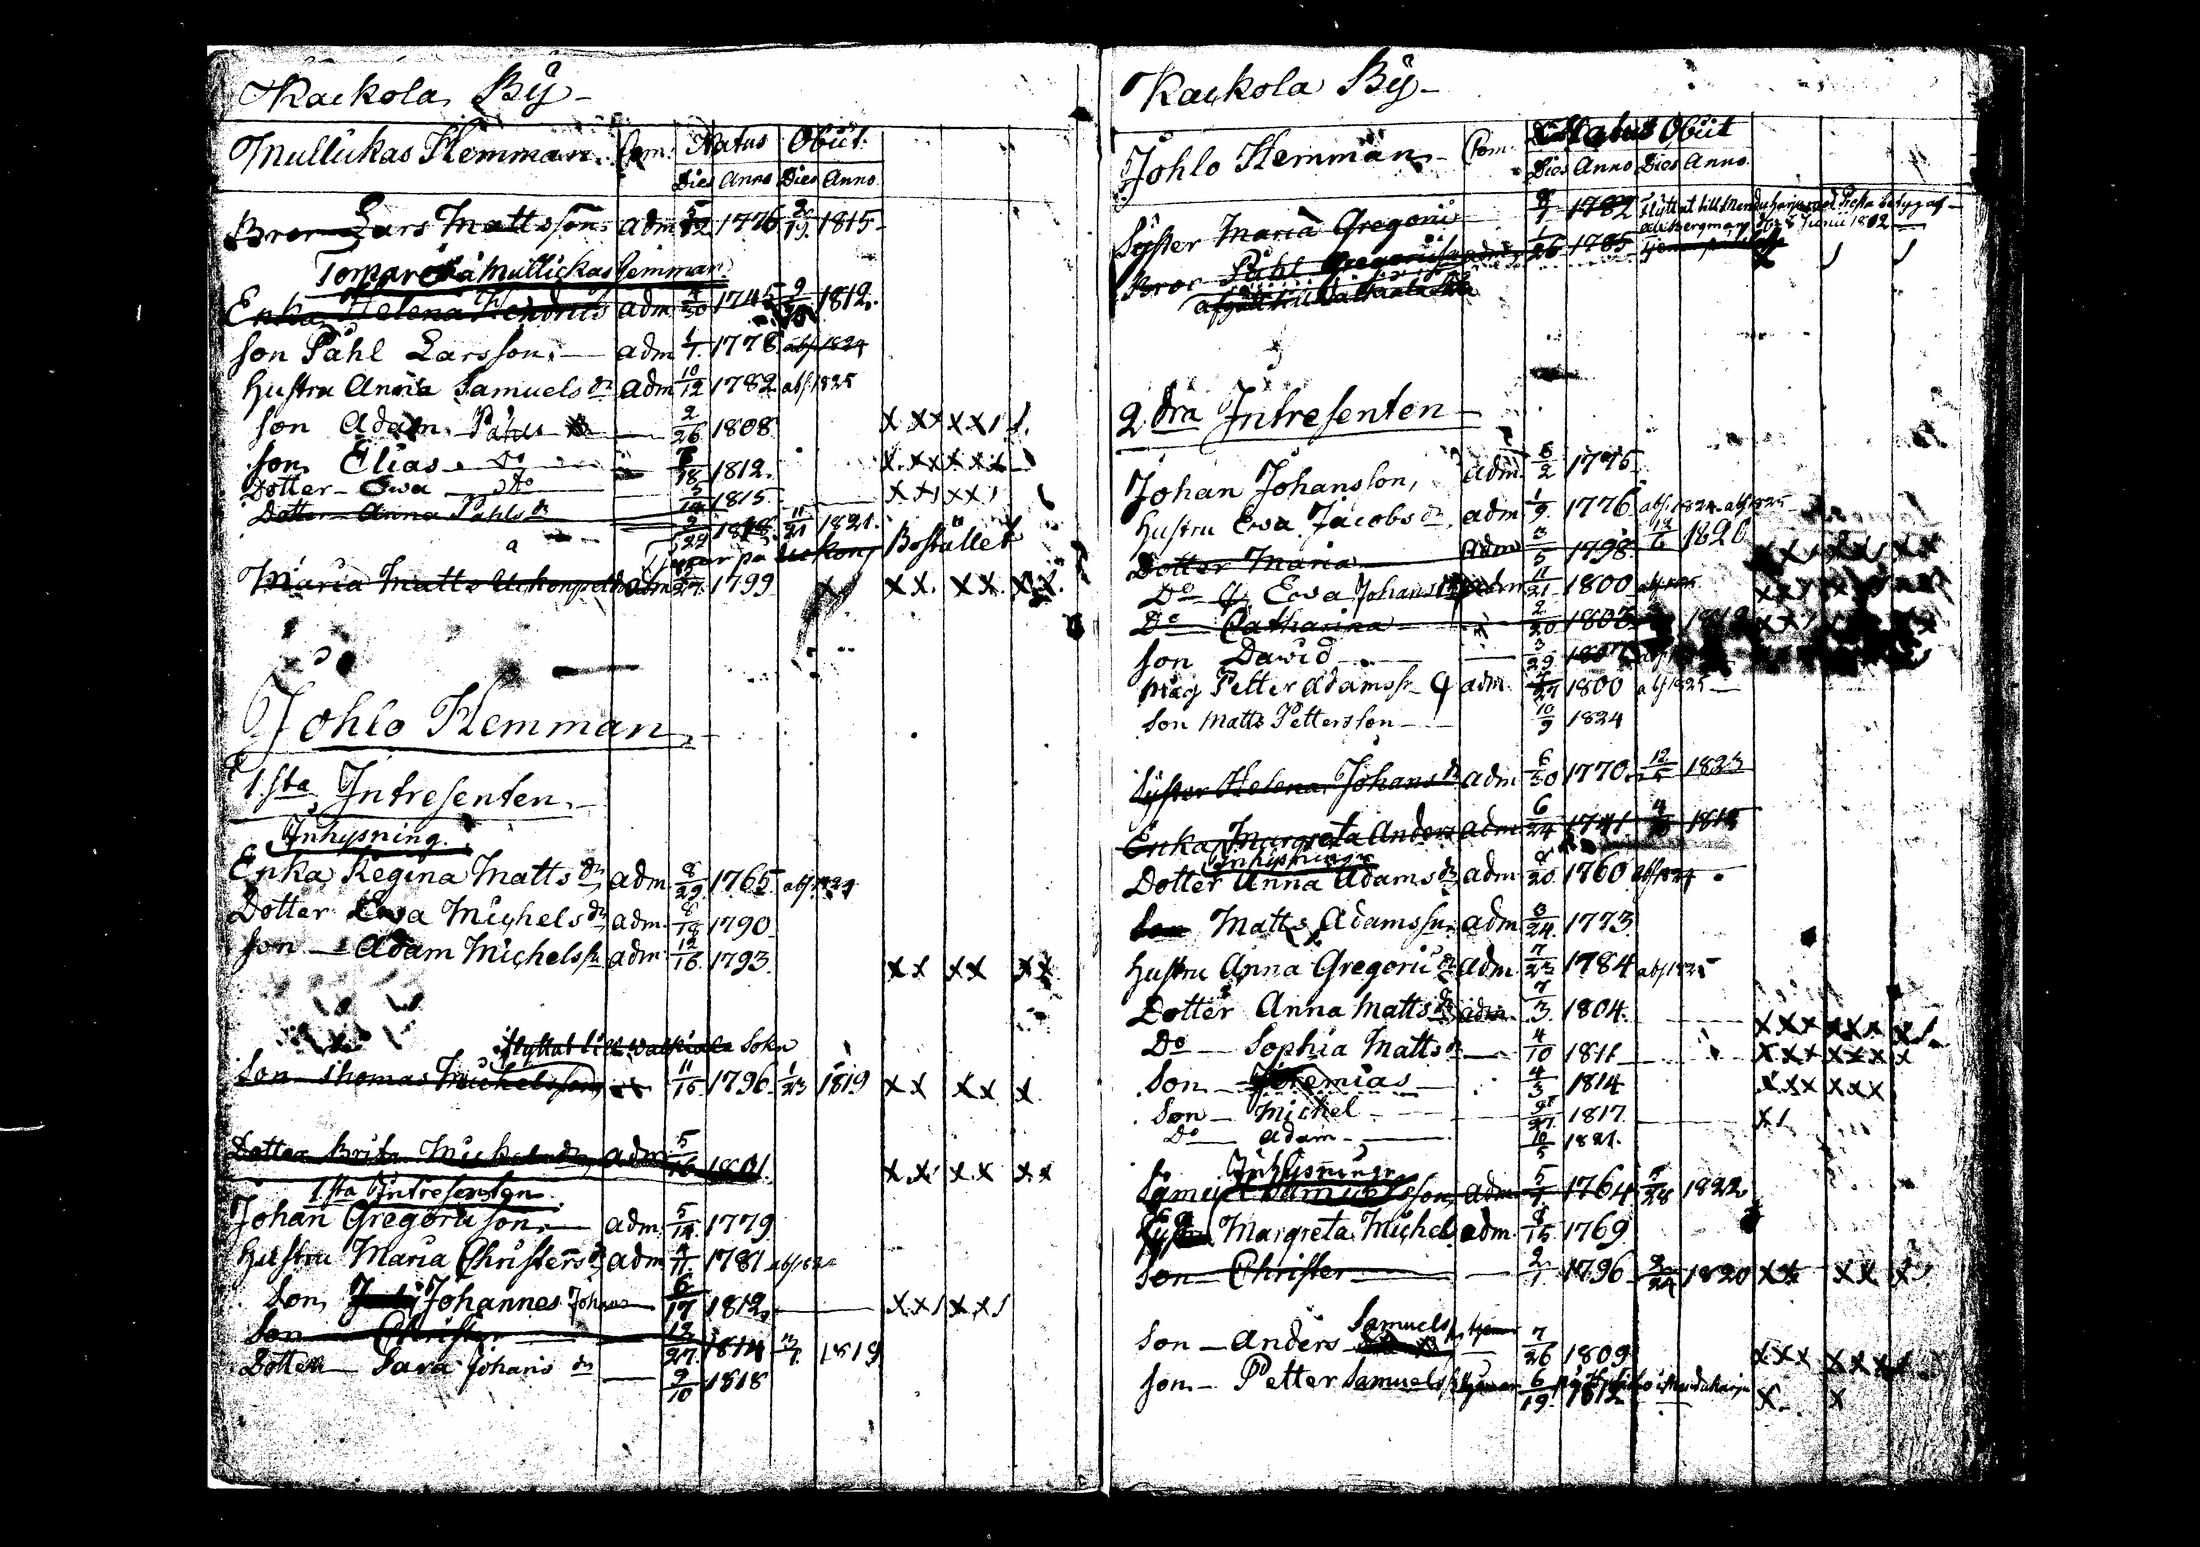 Kackola By
Mullickas Hemman. Com. Natus Obiit.
Dies Anno Dies Anno
Bror Lars Mattsson adm 1776 1815
Tomare å Mullickas hemman
Enka Helena Hendrics adm 4/30 1745 1812.
Son Påhl Larsson adm 1/7 1778 abs. 1824
Hustru Anna Samuels dr adm 10/12 1782 abs. 1825
Son Adam Påhls 2/26 1808 x xx xx
Son Elias Do 1812. x xx xx x
Dotter Ewa Do 1815 xx xx
Dotter Anna Påhls dr 11/21 1821.
på Bostället
Maria Matts adm 1799 xx. xx. xx.
Johlo Hemman
1sta Intresenten
Inhysning.
Enka Regina Matts dr adm 8/29 1765 abs. 1824
Dotter Ewa Michels dr adm 8/18 1790
Son Adam Michelssn adm 12/16 1793 xx xx xx
flyttat till Walkiala Sokn
Son Thomas Michelsson 11/15 1796 1/23 1819 xx xx x
Dotter Brita Michels dr adm 5/16 1801. xx xx xx
1sta Intresenten
Johan Gregorii son adm 5/14 1779
Hustru Maria Christers dr adm 1781
Son Johannes Johans 6/17 1812 xx xx
Son Christer 12/27 1814 1819
Dotter Sara Johans dr 9/10 1818
Kackola By
Johlo Hemman Com. Natus Obiit
Dies Anno Dies Anno
Syster Maria Gregorii 1782 flyttat till
den 8 Junii 1802
Bror Påhl Gregorii 1/26 1785
2dra Intresenten
Johan Johansson, adm 1775
Hustru Ewa Jacobs dr adm 1/9 1776 abs. 1824. abs. 1825
Dotter Maria adm 3/5 1798 1820
Do Ewa Johans adm 11/21 1800
Do Catharina 2/20 1803
Son Dawid 3/29 1807
Måg Petter Adamssn adm. 1800 abs 1825
Son Matts Pettersson 10/9 1824
Syster Helena Johans dr adm 6/30 1770 1823
Enka Margreta Anders adm 6/24 1741
Inhysningr
Dotter Anna Adams dr adm 8/20 1760
Son Matts Adamssn. adm 8/24 1773
Hustru Anna Gregorii dr adm 7/23 1784 abs 1825
Dotter Anna Matts dr adm. 7/3 1804. xxx xxx x
Do Sophia Matts dr 4/10 1811 xxx xxx x
Son Jeremias 4/3 1814 xxx xxx
Son Michel 1817 x
Do Adam 10/5 1821.
Inhysningr
Samuel Samuelsson adm 1764 1822
Margreta Michel adm. 8/15 1769
Son Christer 2/1 1796 1820 xx xx x
Son Anders Samuels 7/26 1809 xxx xxx
Son Petter Samuels 6/19 1812 x x